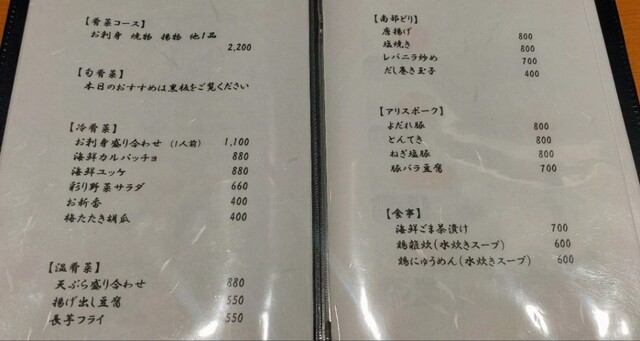 【肴菜コース】
お刺身 焼物 揚物 他1品
2,200
【旬肴菜】
本日のおすすめは黒板をご覧ください
【冷肴菜】
お刺身盛り合わせ (1人前) 1,100
海鮮カルパッチョ 880
海鮮ユッケ 880
彩り野菜サラダ 660
お新香 400
梅たたき胡瓜 400
【温肴菜】
天ぷら盛り合わせ 880
揚げ出し豆腐 550
長芋フライ 550
【南部どり】
唐揚げ 800
塩焼き 800
レバニラ炒め 700
だし巻き玉子 400
【アリスポーク】
よだれ豚 800
とんてき 800
ねぎ塩豚 800
豚バラ豆腐 700
【食事】
海鮮ごま茶漬け 700
鶏雑炊(水炊きスープ) 600
鶏にゅうめん(水炊きスープ) 600